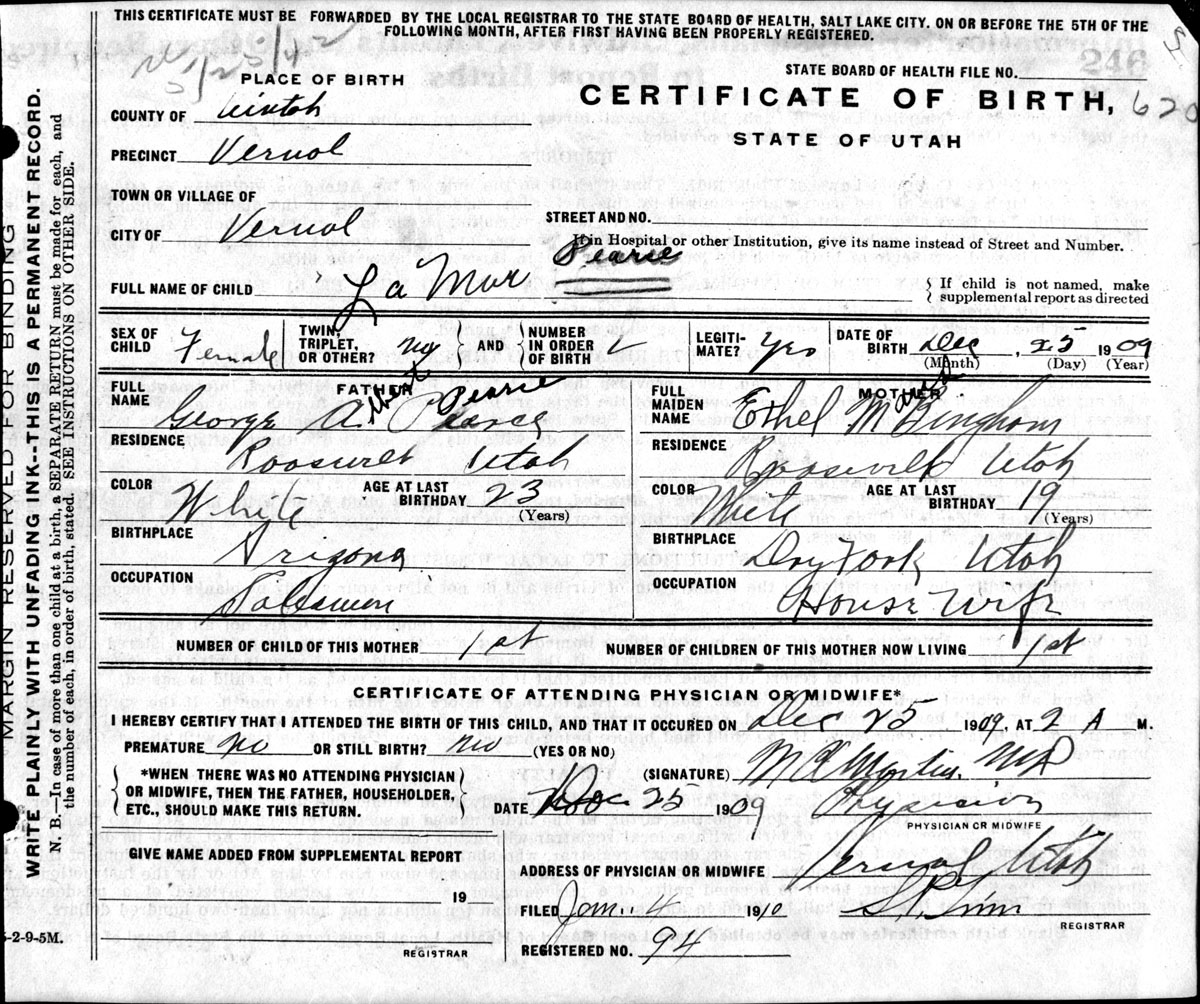 THIS CERTIFICATE MUST BE FORWARDED BY THE LOCAL REGISTRAR TO THE STATE BOARD OF HEALTH, SALT LAKE CITY. ON OR BEFORE THE 5TH OF THE
FOLLOWING MONTH, AFTER FIRST HAVING BEEN PROPERLY REGISTERED.
MARGIN RESERVED FOR BINDING
WRITE PLAINLY WITH UNFADING INK--THIS IS A PERMANENT RECORD.
N. B.—In case of more than one child at a birth, a SEPARATE RETURN must be made for each, and
the number of each, in order of birth, stated. SEE INSTRUCTIONS ON OTHER SIDE.
PLACE OF BIRTH
STATE BOARD OF HEALTH FILE NO.
246
CERTIFICATE OF BIRTH, 620
STATE OF UTAH
COUNTY OF Uintah
PRECINCT Vernal
TOWN OR VILLAGE OF
CITY OF Vernal
STREET AND NO.
If in Hospital or other Institution, give its name instead of Street and Number.
FULL NAME OF CHILD La Mar Pearce
If child is not named, make
supplemental report as directed
SEX OF CHILD Female
TWIN, TRIPLET, OR OTHER? no
AND NUMBER IN ORDER OF BIRTH
LEGITIMATE? Yes
DATE OF BIRTH Dec, 25 1909
(Month) (Day) (Year)
FATHER
FULL NAME George A. Pearce
RESIDENCE
Roosevelt Utah
COLOR White
AGE AT LAST BIRTHDAY 23
(Years)
BIRTHPLACE
Arizona
OCCUPATION
Salesman
MOTHER
FULL MAIDEN NAME Ethel M Bingham
RESIDENCE
Roosevelt Utah
COLOR White
AGE AT LAST BIRTHDAY 19
(Years)
BIRTHPLACE
Dry Fork Utah
OCCUPATION
House Wife
NUMBER OF CHILD OF THIS MOTHER 1st NUMBER OF CHILDREN OF THIS MOTHER NOW LIVING 1st
CERTIFICATE OF ATTENDING PHYSICIAN OR MIDWIFE*
I HEREBY CERTIFY THAT I ATTENDED THE BIRTH OF THIS CHILD, AND THAT IT OCCURED ON Dec 25 1909, AT 2 A M.
PREMATURE No OR STILL BIRTH? No (YES OR NO)
*WHEN THERE WAS NO ATTENDING PHYSICIAN
OR MIDWIFE, THEN THE FATHER, HOUSEHOLDER,
ETC., SHOULD MAKE THIS RETURN.
(SIGNATURE) Martin MD
DATE Dec 25 1909 Physician
PHYSICIAN OR MIDWIFE
GIVE NAME ADDED FROM SUPPLEMENTAL REPORT
19
REGISTRAR
ADDRESS OF PHYSICIAN OR MIDWIFE Vernal Utah
FILED Jan. 4 1910
REGISTRAR
REGISTERED NO. 94
5-2-9-5M.